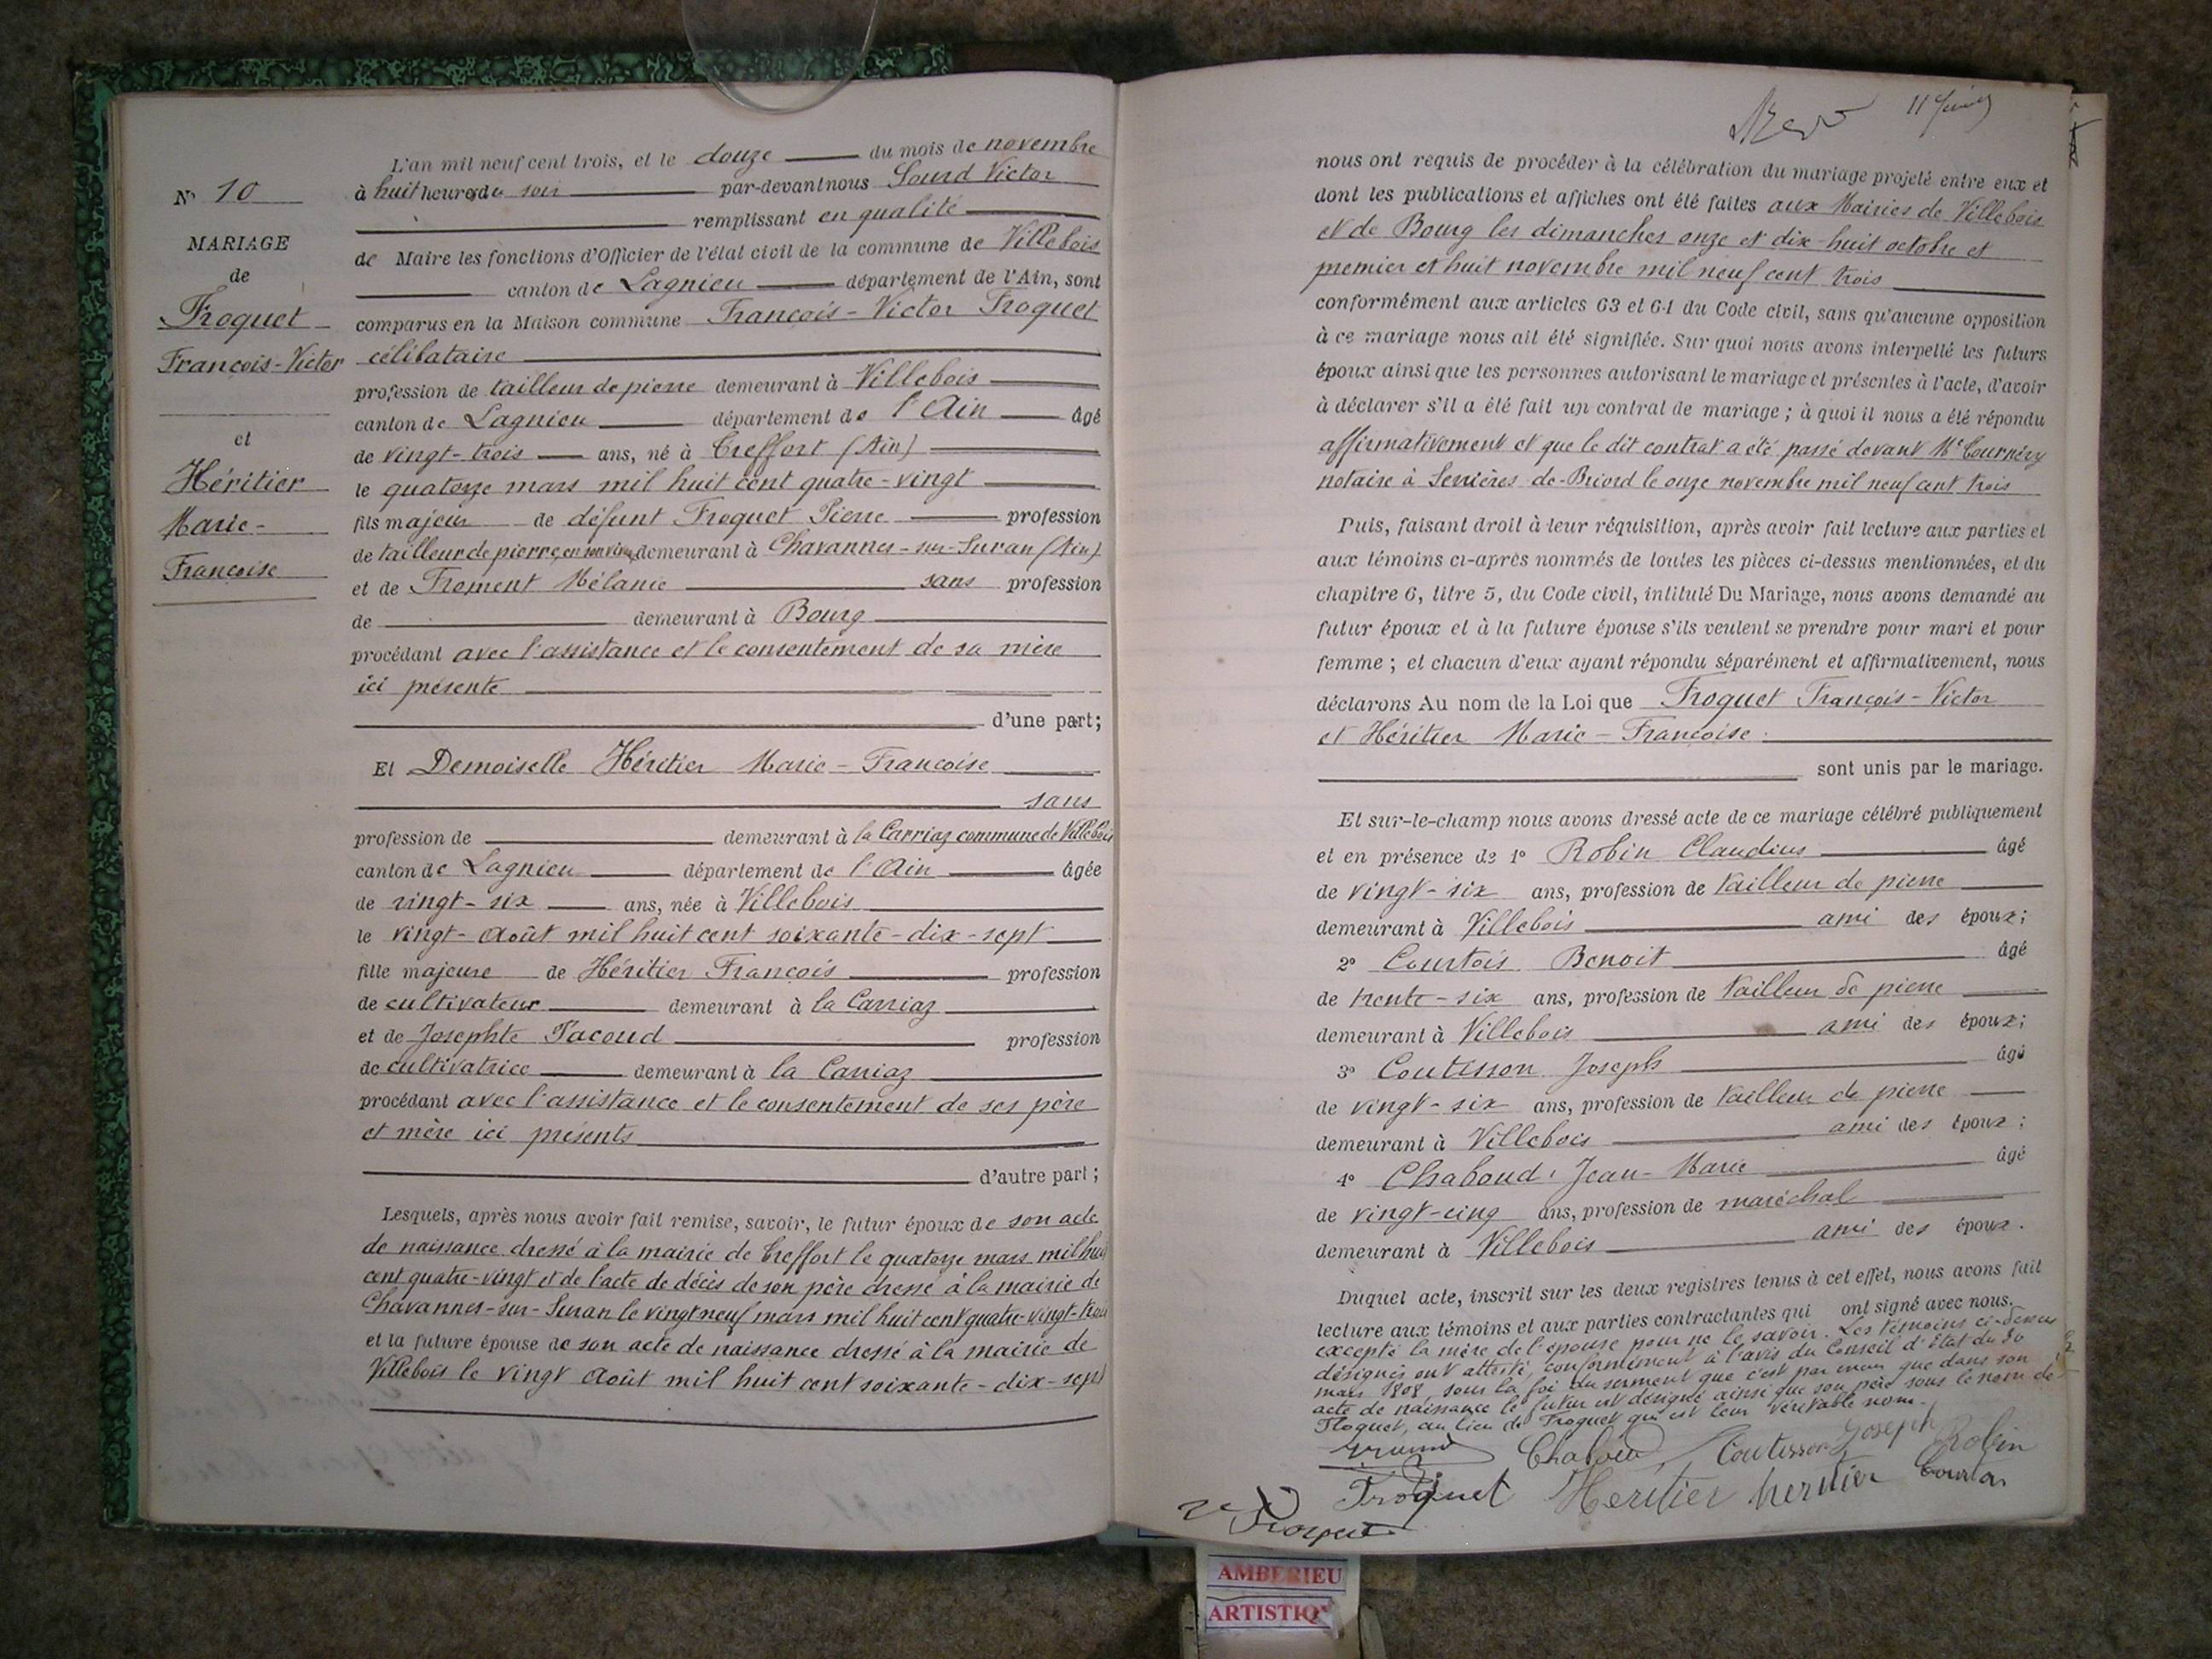 L'an mil neuf cent trois, et le douze du mois de novembre
à huit heures du soir par-devant nous Sourd Victor
remplissant en qualité
de Maire les fonctions d'Officier de l'état civil de la commune de Villebois
canton de Lagnieu département de l'Ain, sont
comparus en la Maison commune François-Victor Troquet
célibataire
profession de tailleur de pierre demeurant à Villebois
canton de Lagnieu département de l'Ain âgé
de vingt-trois ans, né à Treffort (Ain)
le quatorze mars mil huit cent quatre-vingt
fils majeur de défunt Troquet Pierre profession
de tailleur de pierre, en son vivant demeurant à Chavannes-sur-Suran (Ain)
et de Froment Mélanie sans profession
de demeurant à Bourg
procédant avec l'assistance et le consentement de sa mère
ici présente
d'une part;
Et Demoiselle Héritier Marie-Françoise
sans
profession de demeurant à la Carriaz commune de Villebois
canton de Lagnieu département de l'Ain âgée
de vingt-six ans, née à Villebois
le vingt-août mil huit cent soixante-dix-sept
fille majeure de Héritier François profession
de cultivateur demeurant à la Carriaz
et de Josephte Tacoud profession
de cultivatrice demeurant à la Carriaz
procédant avec l'assistance et le consentement de ses père
et mère ici présents
d'autre part;
Lesquels, après nous avoir fait remise, savoir, le futur époux de son acte
de naissance dressé à la mairie de Treffort le quatorze mars mil huit
cent quatre-vingt et de l'acte de décès de son père dressé à la mairie de
Chavannes-sur-Suran le vingt neuf mars mil huit cent quatre-vingt-trois
et la future épouse de son acte de naissance dressé à la mairie de
Villebois le vingt août mil huit cent soixante-dix-sept
N° 10
MARIAGE
de
Troquet
François-Victor
et
Héritier
Marie-
Françoise
11
nous ont requis de procéder à la célébration du mariage projeté entre eux et
dont les publications et affiches ont été faites aux Mairies de Villebois
et de Bourg les dimanches onze et dix-huit octobre et
premier et huit novembre mil neuf cent trois
conformément aux articles 63 et 64 du Code civil, sans qu'aucune opposition
à ce mariage nous ait été signifiée. Sur quoi nous avons interpellé les futurs
époux ainsi que les personnes autorisant le mariage et présentes à l'acte, d'avoir
à déclarer s'il a été fait un contrat de mariage; à quoi il nous a été répondu
affirmativement et que le dit contrat a été passé devant Me Tournéry
notaire à Serrières-de-Briord le onze novembre mil neuf cent trois
Puis, faisant droit à leur réquisition, après avoir fait lecture aux parties et
aux témoins ci-après nommés de toutes les pièces ci-dessus mentionnées, et du
chapitre 6, titre 5, du Code civil, intitulé Du Mariage, nous avons demandé au
futur époux et à la future épouse s'ils veulent se prendre pour mari et pour
femme; et chacun d'eux ayant répondu séparément et affirmativement, nous
déclarons Au nom de la Loi que Troquet François-Victor
et Héritier Marie-Françoise
sont unis par le mariage.
Et sur-le-champ nous avons dressé acte de ce mariage célébré publiquement
et en présence de 1° Robin Claudius âgé
de vingt-six ans, profession de tailleur de pierre
demeurant à Villebois ami des époux;
2° Courtois Benoit âgé
de trente-six ans, profession de tailleur de pierre
demeurant à Villebois ami des époux;
3° Coutisson Joseph âgé
de vingt-six ans, profession de tailleur de pierre
demeurant à Villebois ami des époux;
4° Chaboud Jean-Marie âgé
de vingt-cinq ans, profession de maréchal
demeurant à Villebois ami des époux.
Duquel acte, inscrit sur les deux registres tenus à cet effet, nous avons fait
lecture aux témoins et aux parties contractantes qui ont signé avec nous.
excepté la mère de l'épouse pour ne le savoir. Les témoins ci-dessus
désignés ont attesté, conformément à l'avis du Conseil d'Etat du 30
mars 1808, sous la foi du serment que c'est par erreur que dans son
acte de naissance le futur est désigné ainsi que son père sous le nom de
Floquet, au lieu de Troquet qui est leur véritable nom.
Chaboud Coutisson Joseph Robin
Troquet Heritier heritier Courtois
AMBERIEU
ARTISTIQ